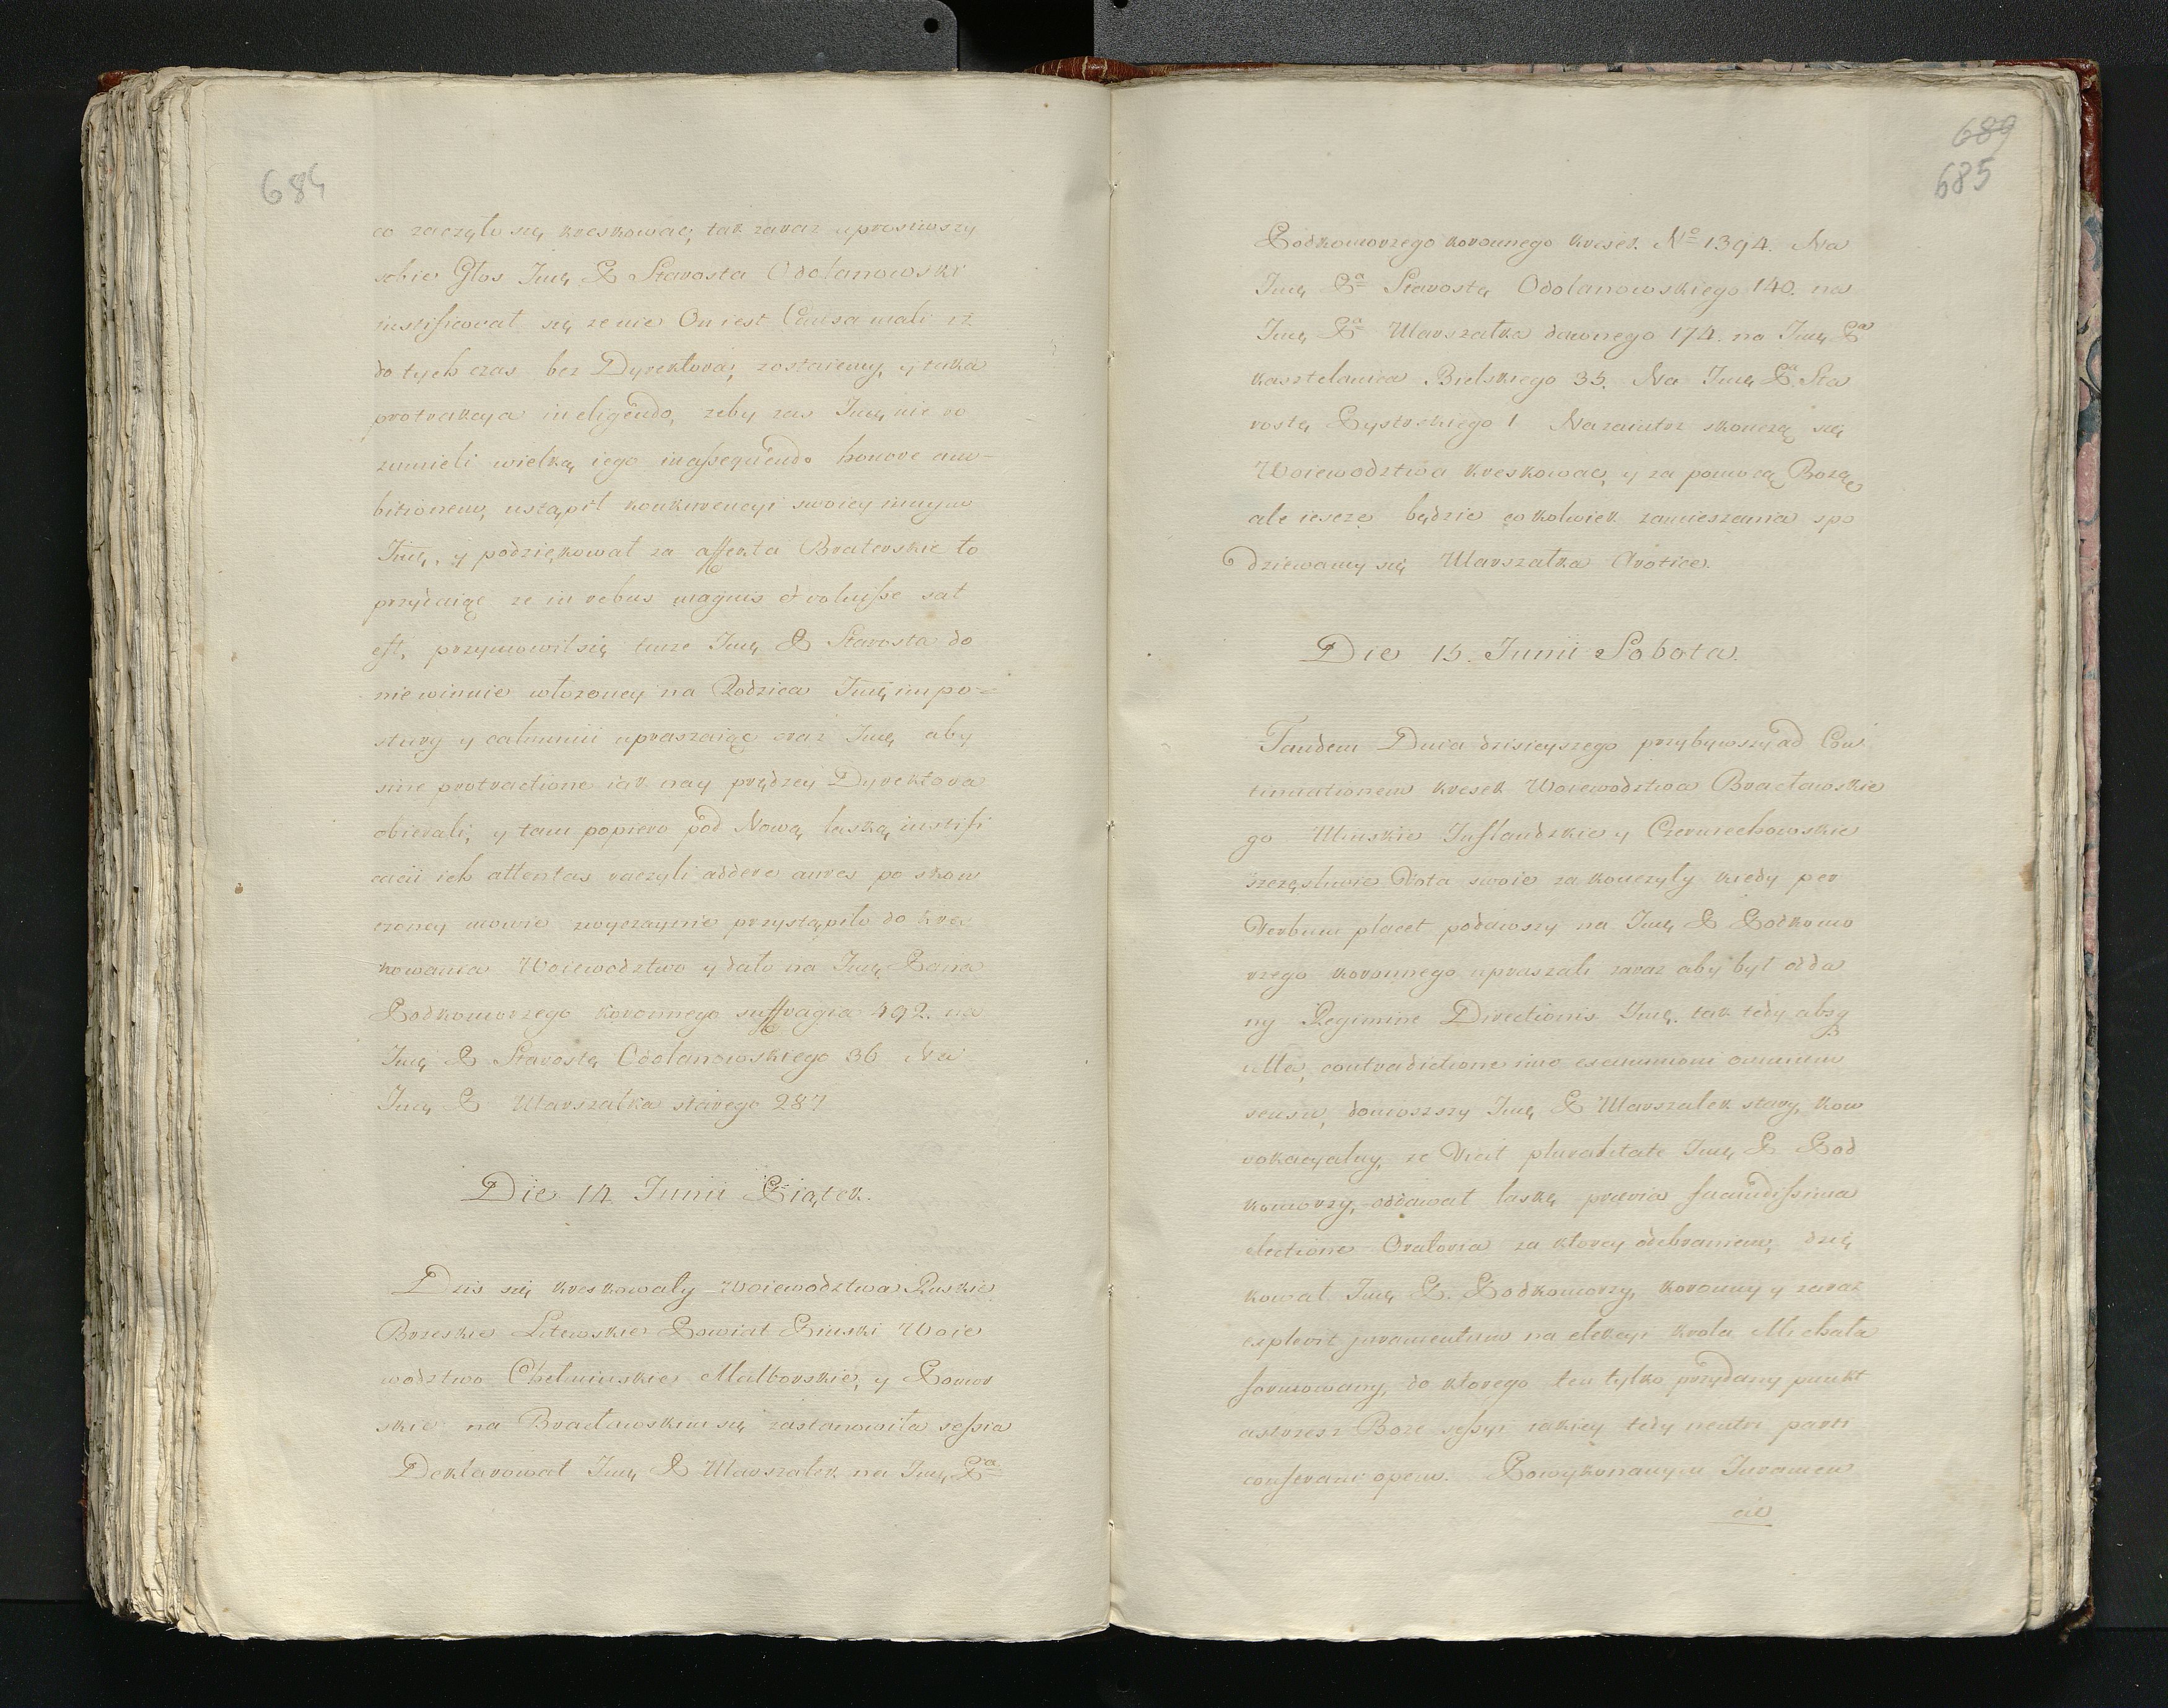 684
co zaczęło się kreskować, tak zaraz uprosiwszy
sobie Głos Jmę P Starosta Odolanowski
iustifikował się że nie On iest Causa mali iż
do tych czas bez Dyrektora, zostaiemy, y taka
protrakcya in eligendo, żeby zas Jmę nie ro
zumieli wielką iego in assequendo honore am-
bitionem, ustąpił konkurencyi swoiey innym
Jmę, y podziękował za affekta Braterskie to
przydaiąc ze in rebus magnis et voluisse sat
est, przymowił się tuże Jmę P Starosta do
niewinnie włożoney na Rodzica Jmę impo-
stury y calumnii upraszaiąc oraz Jmę aby
sine protractione iak nay prędzey Dyrektora
obierali, y tam popiero pod Nową laską iustifi
cacii ich attentas raczyli addere aures po skon
czoney mowie zwyczaynie przystąpiło do kres
kowania Woiewodztwo y dało na Jmę Pana
Podkomorzego koronnego suffragia 492. na
Jmę P Starostę Odolanowskiego 36 Na
Jmę P Marszałka starego 287
Die 14 Junii Piątek.
Dzis się kreskowały Woiewodztwa Ruskie
Brzeskie Litewskie Powiat Pinski Woie
wodztwo Chełminskie Malborskie, y Pomor
skie na Bracławskim się zastanowiła sessia
Deklarował Jmę P Marszałek na Jmę Pa
689
685
Podkomorzego koronnego kresek No 1394. Na
Jmę Pa Starostę Odolanowskiego 140. na
Jmę Pa Marszałka dawnego 174. na Jmę Pa
kasztelanica Bielskiego 35. Na Jmę Pa Sta
rostę Bystrskiego 1 Nazaiutrz skonczą się
Woiewodztwa kreskować, y za pomocą Bozą
ale iescze będzie cokolwiek zamieszania spo
dziewamy się Marszałka Arctice.
Die 15. Junii Sobota.
Tandem Dnia dzisieyszego przybywszy ad Con
tinuationem kresek Woiewodztwa Bracławskie
go Minskie Inflandzkie y Czerniechowskie
szczęsliwie Vota swoie zakonczyły kiedy per
Verbum placet podawszy na Jmę P Podkomo
rzego koronnego upraszali zaraz aby był odda
ny Regimine Directionis Jmę. tak tedy absq
ulla, contradictione imo ex communi omnium
sensu, doniosszy Jmę P Marszałek stary, kon
vokacyalny, ze Vicit pluralitate Jmę P Pod
komorzy, oddawał laskę prævia facundissima
electione Oratoria za ktorey odebraniem, dzię
kował Jmę P. Podkomorzy, koronny y zaraz
explevit juramentum na elekcyi krola Michała
formowany, do ktorego ten tylko przydany punkt
astrzesz Boze sessyi iakiey tedy neutri parti
conferam opem. Powykonanym Juramen
cie